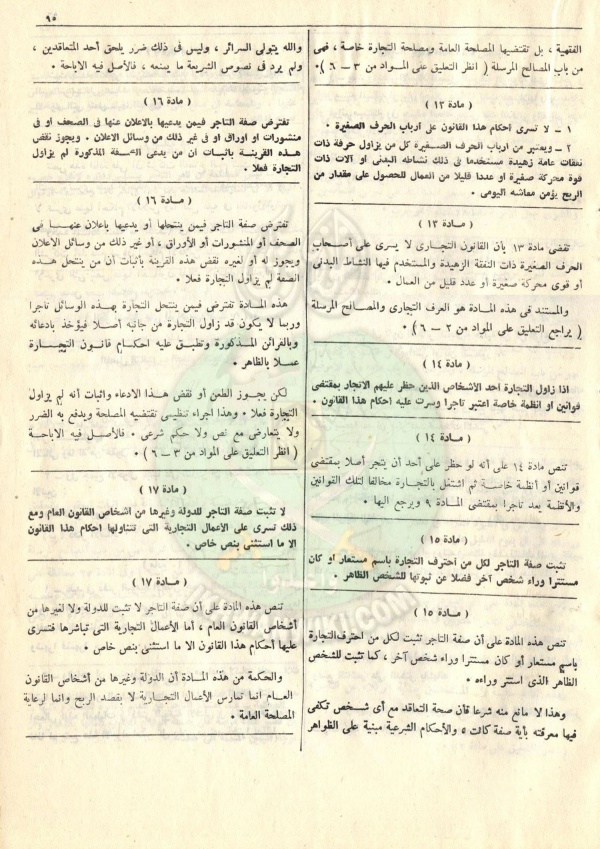 ٩٥
الفقهية ، بل تقتضيها المصلحة العامة ومصلحة التجارة خاصة ، فهى
من باب المصالح المرسلة ( انظر التعليق على المواد من ٣ — ٦ ) ٠
( مادة ١٣ )
١ – لا تسرى أحكام هذا القانون على أرباب الحرف الصغيرة ٠
٢ – ويعتبر من أرباب الحرف الصغيرة كل من يزاول حرفة ذات
نفقات عامة زهيدة مستخدما فى ذلك نشاطه البدنى أو آلات ذات
قوة محركة صغيرة او عددا قليلا من العمال للحصول على مقدار من
الربح يؤمن معاشه اليومى ٠
( مادة ١٣ )
تقضى مادة ١٣ بأن القانون التجارى لا يسرى على أصحاب
الحرف الصغيرة ذات النفقة الزهيدة والمستخدم فيها النشاط البدنى
أو قوى محركة صغيرة أو عدد قليل من العمال ٠
والمستند فى هذه المادة هو العرف التجارى والمصالح المرسلة
( يراجع التعليق على المواد من ٢ – ٦ ) ٠
( مادة ١٤ )
اذا زاول التجارة احد الأشخاص الذين حظر عليهم الاتجار بمقتضى
قوانين او انظمة خاصة اعتبر تاجرا وسرت عليه احكام هذا القانون ٠
( مادة ١٤ )
تنص مادة ١٤ على أنه لو حظر على أحد أن يتجر أصلا بمقتضى
قوانين أو أنظمة خاصة ثم اشتغل بالتجارة مخالفا لتلك القوانين
والأنظمة يعد تاجرا بمقتضى المادة ٩ ويرجع اليها ٠
( مادة ١٥ )
تثبت صفة التاجر لكل من أحترف التجارة باسم مستعار او كان
مستترا وراء شخص آخر فضلا عن ثبوتها للشخص الظاهر ٠
( مادة ١٥ )
تنص هذه المادة على أن صفة التاجر تثبت لكل من احترف التجارة
باسم مستعار أو كان مستترا وراء شخص آخر ، كما تثبت للشخص
الظاهر الذى استتر وراءه ٠
وهذا لا مانع منه شرعا فأن صحة التعاقد مع أى شخص تكفى
فيها معرفته بأية صفة كانت ٥ والأحكام الشرعية مبنية على الظواهر
والله يتولى السرائر ، وليس فى ذلك ضرر يلحق أحد المتعاقدين ،
ولم يرد فى نصوص الشريعة ما يمنعه ، فالأصل فيه الاباحة ٠
( مادة ١٦ )
تفترض صفة التاجر فيمن يدعيها بالاعلان عنها فى الصحف او فى
منشورات او اوراق او فى غير ذلك من وسائل الاعلان ٠ ويجوز نقض
هذه القرينة باثبات ان من يدعى الصفة المذكورة لم يزاول
التجارة فعلا ٠
( مادة ١٦ )
تفترض صفة التاجر فيمن ينتحلها أو يدعيها باعلان عنها فى
الصحف أو المنشورات أو الأوراق ، أو غير ذلك من وسائل الاعلان
ويجوز له أو لغيره نقض هذه القرينة بأثبات أن من ينتحل هذه
الصفة لم يزاول التجارة فعلا ٠
هذه المادة تفترض فيمن ينتحل التجارة بهذه الوسائل تاجرا
وربما لا يكون قد زاول التجارة من جانبه أصلا فيؤخذ بأدعائه
وبالقرائن المذكورة وتطبق عليه احكام قانون التجارة
عملا بالظاهر ٠
لكن يجوز الطعن أو نقض هذا الادعاء واثبات أنه لم يزاول
التجارة فعلا ٠ وهذا اجراء تنظيمى تقتضيه المصلحة ويدفع به الضرر
ولا يتعارض مع نص ولا حكم شرعى ٠ فالأصل فيه الاباحة
( انظر التعليق على المواد من ٣ – ٦ ) ٠
( مادة ١٧ )
لا تثبت صفة التاجر للدولة وغيرها من اشخاص القانون العام ومع
ذلك تسرى على الأعمال التجارية التى تتناولها احكام هذا القانون
الا ما استثنى بنص خاص ٠
( مادة ١٧ )
تنص هذه المادة على أن صفة التاجر لا تثبت للدولة ولا لغيرها من
أشخاص القانون العام ، أما الأعمال التجارية التى تباشرها فتسرى
عليها أحكام هذا القانون الا ما استثنى بنص خاص ٠
والحكمة من هذه المادة أن الدولة وغيرها من أشخاص القانون
العام انما تمارس الأعمال التجارية لا بقصد الربح وانما لرعاية
المصلحة العامة ٠